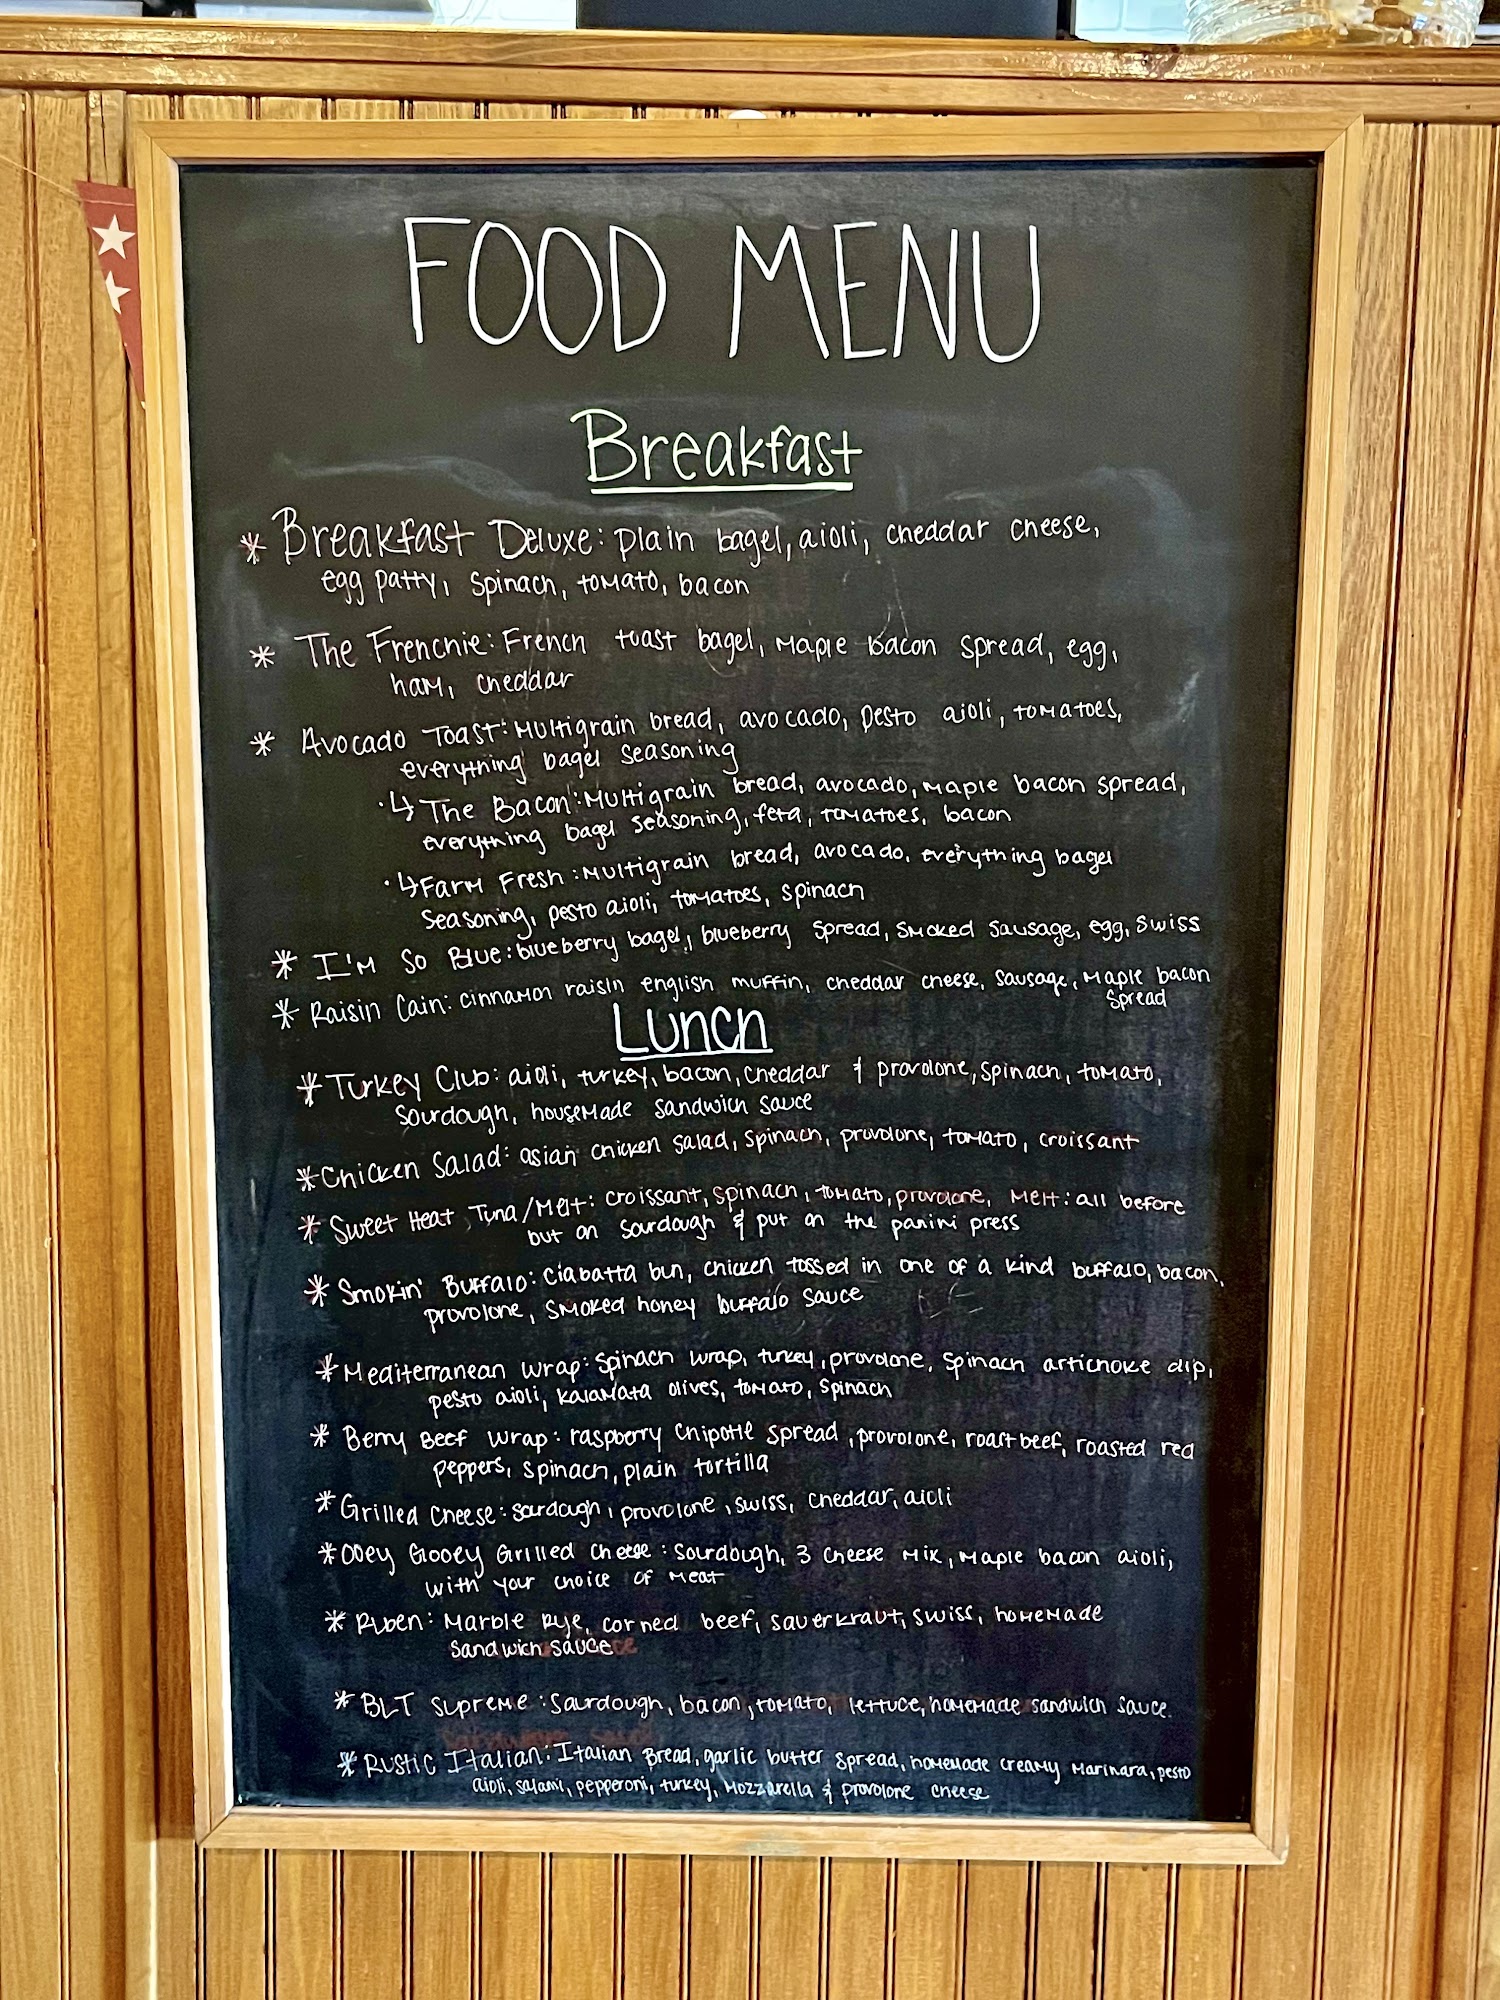 FOOD MENU
Breakfast
* Breakfast Deluxe: plain bagel, aioli, cheddar cheese,
egg patty, spinach, tomato, bacon
* The Frenchie: French toast bagel, maple bacon spread, egg,
ham, cheddar
* Avocado Toast: Multigrain bread, avocado, pesto aioli, tomatoes,
everything bagel seasoning
· ↳ The Bacon: Multigrain bread, avocado, maple bacon spread,
everything bagel seasoning, feta, tomatoes, bacon
· ↳ Farm Fresh: Multigrain bread, avocado, everything bagel
seasoning, pesto aioli, tomatoes, spinach
* I'm So Blue: blueberry bagel, blueberry spread, smoked sausage, egg, swiss
* Raisin Cain: cinnamon raisin english muffin, cheddar cheese, sausage, maple bacon
spread
Lunch
* Turkey Club: aioli, turkey, bacon, cheddar & provolone, spinach, tomato,
sourdough, housemade sandwich sauce
* Chicken Salad: asian chicken salad, spinach, provolone, tomato, croissant
* Sweet Heat Tuna/Melt: croissant, spinach, tomato, provolone, Melt: all before
but on sourdough & put on the panini press
* Smokin' Buffalo: ciabatta bun, chicken tossed in one of a kind buffalo, bacon,
provolone, smoked honey buffalo sauce
* Mediterranean wrap: spinach wrap, turkey, provolone, spinach artichoke dip,
pesto aioli, kalamata olives, tomato, spinach
* Berry Beef wrap: raspberry chipotle spread, provolone, roast beef, roasted red
peppers, spinach, plain tortilla
* Grilled Cheese: sourdough, provolone, swiss, cheddar, aioli
* Ooey Gooey Grilled Cheese: sourdough, 3 cheese mix, maple bacon aioli,
with your choice of meat
* Ruben: Marble Rye, corned beef, sauerkraut, swiss, homemade
sandwich sauce
* BLT Supreme: Sourdough, bacon, tomato, lettuce, homemade sandwich sauce.
* Rustic Italian: Italian Bread, garlic butter spread, homemade creamy marinara, pesto
aioli, salami, pepperoni, turkey, mozzarella & provolone cheese